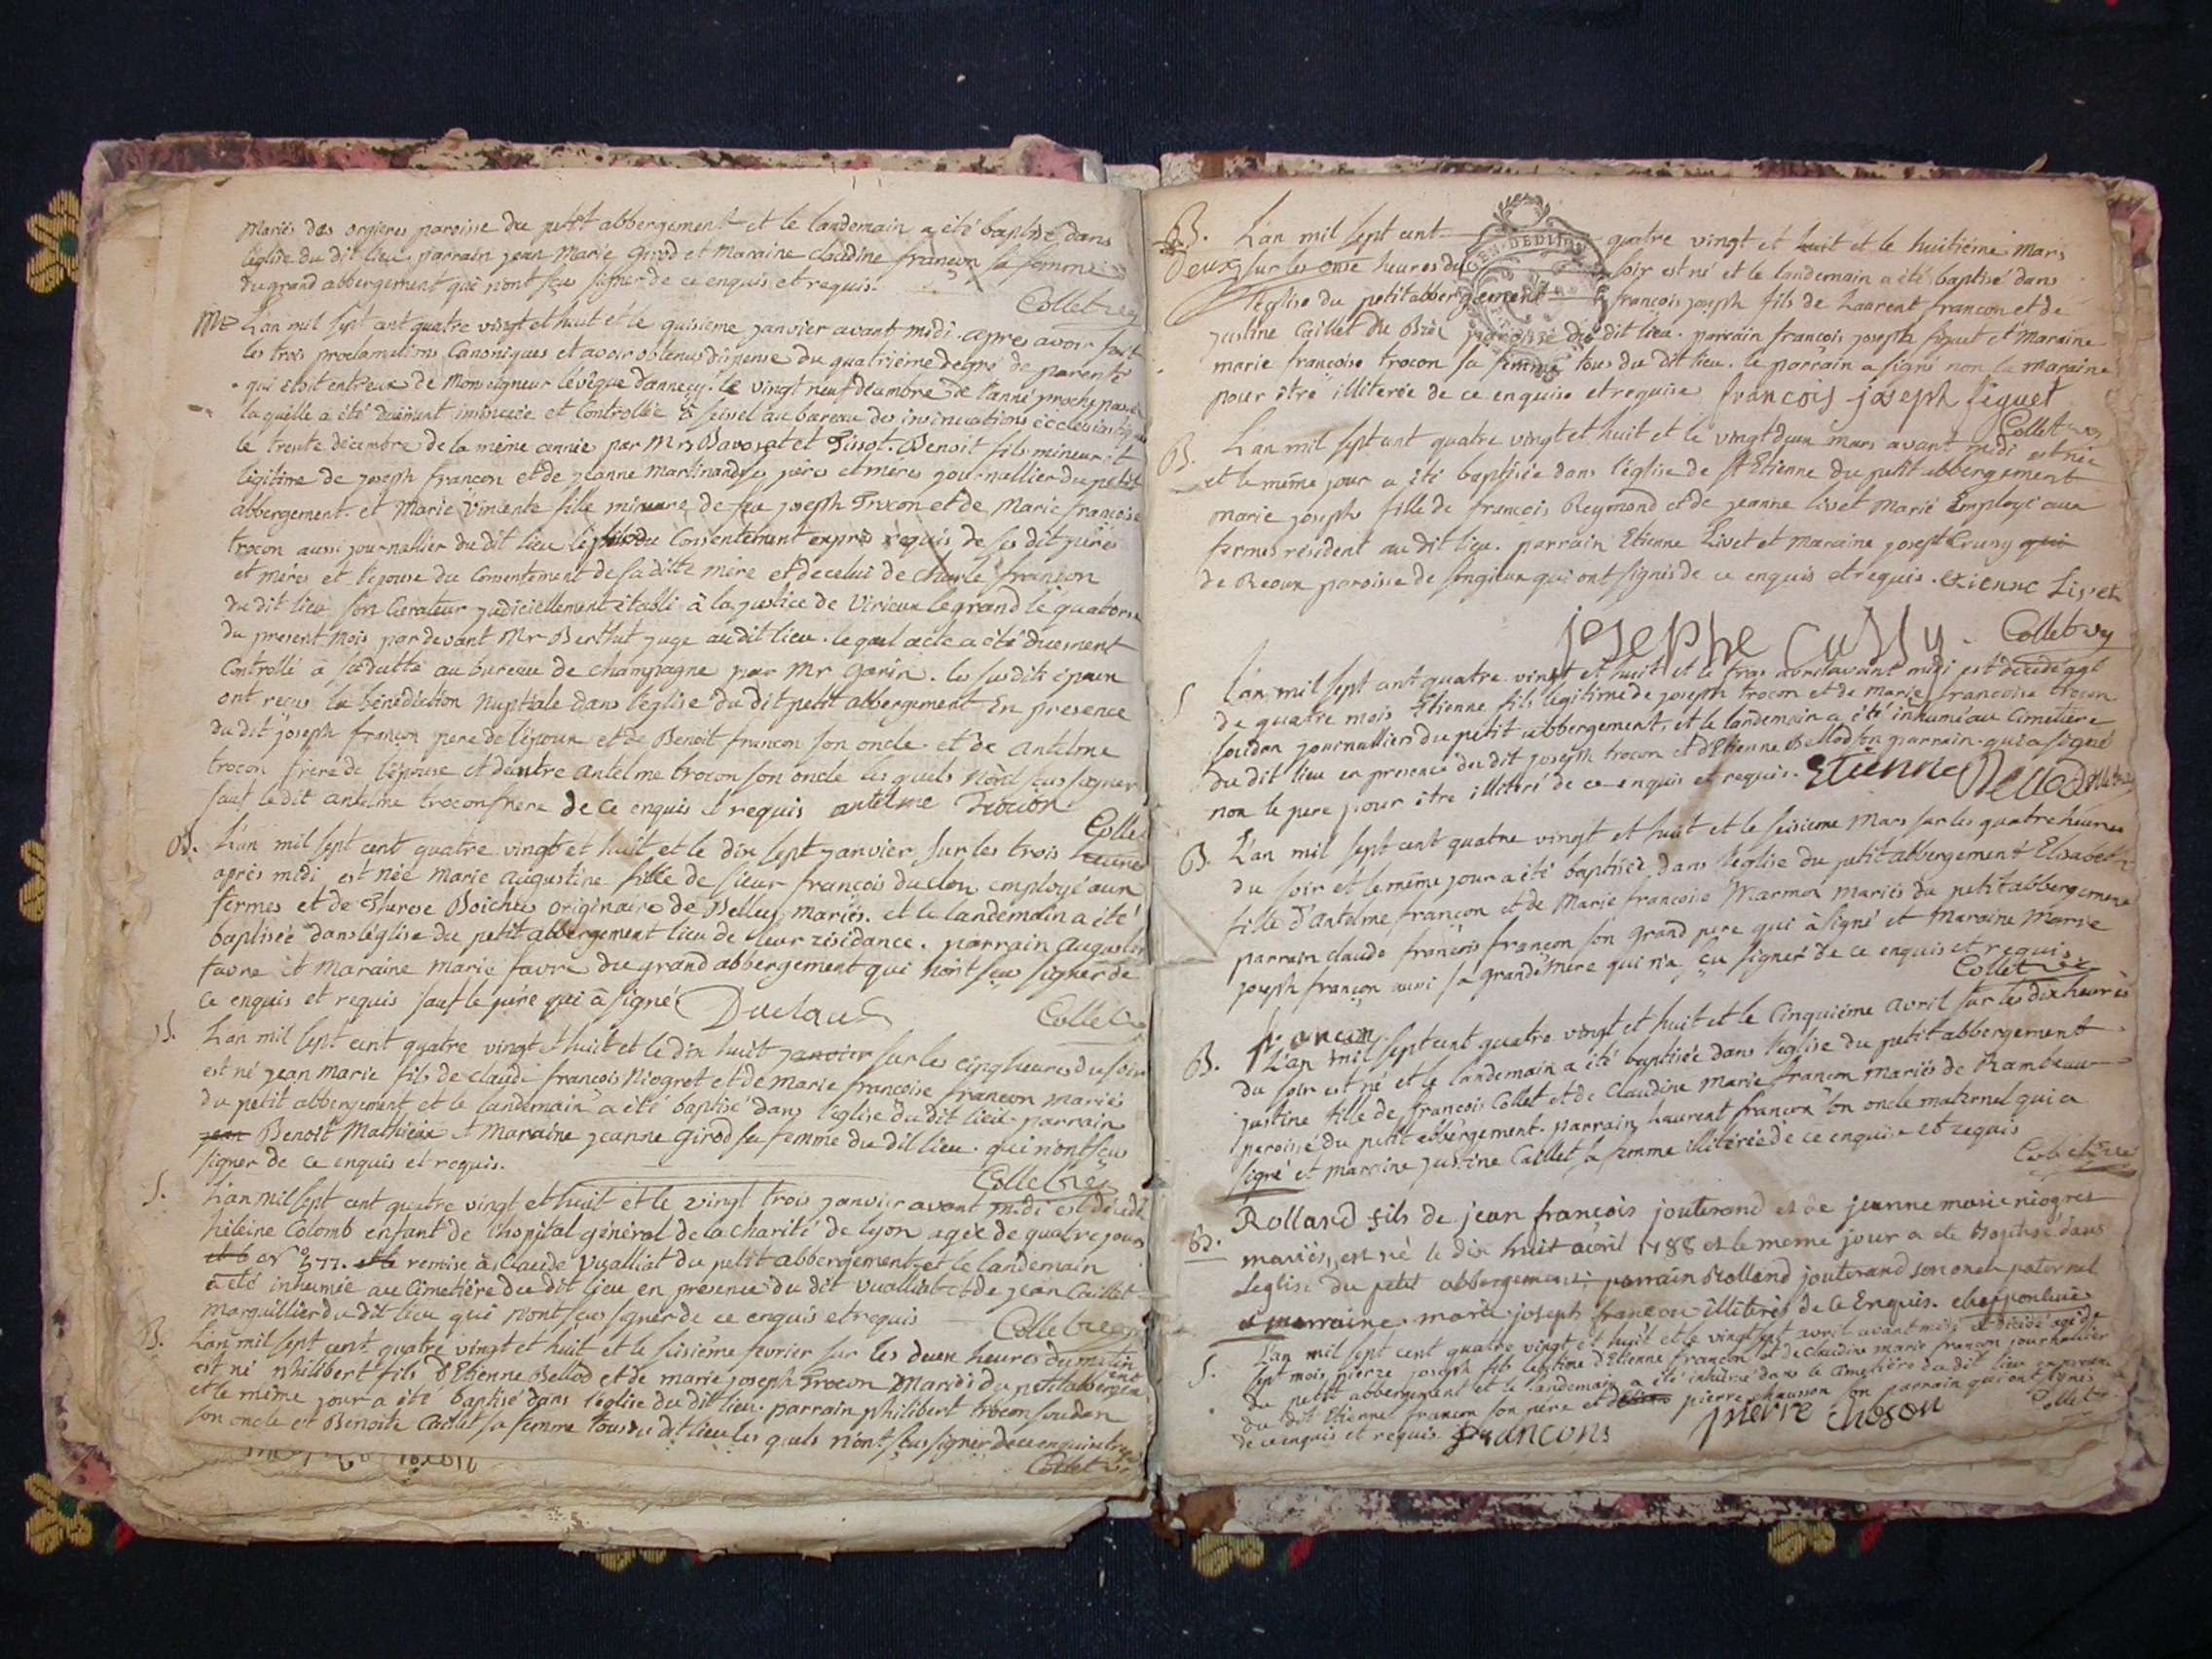 Mariés des orgieres paroisse du petit abbergement et le landemain a été baptisé dans
l'église du dit lieu. parrain jean Marie Girod et Maraine claudine françon sa femme
du grand abbergement qui n'ont sçus signer de ce enquis et requis.
Collet
L'an mil sept cent quatre vingt et huit et le quisieme janvier avant midi. apres avoir fait
les trois proclamations Canoniques et avoir obtenus dispense du quatrième degré de parenté
qui étoit entr'eux de Monseigneur l'évêque d'annecy. le vingt neuf décembre de l'anné proche passée
laquelle a été duement insinuée et Controllée à seissel au bureau des insinuations écclésiastiques
le trente décembre de la même année par Mrs Bavozat et Tissot. Benoit fils mineur et
légitime de joseph françon et de jeanne martinand ses père et mère journallier du petit
abbergement. et Marie Vincente fille mineure de feu joseph Trocon et de Marie françoise
trocon aussi journallier du dit lieu du Consentement exprès requis de ses dit pères
et mères et l'epouse du Consentement de sa ditte mère et de celui de charle françon
du dit lieu son Curateur judiciellement établi à la justice de Virieux le grand le quatorse
du present mois par devant Mr Berthet juge au dit lieu. le quel acte a été duement
Controllé à sa dutte au bureau de champagne par Mr Garin. les susdits époux
ont reçus la bénédiction Nuptiale dans l'église du dit petit abbergement En presence
du dit joseph françon pere de l'époux et de Benoit françon son oncle. et de antelme
trocon frere de l'épouse et d'autre antelme trocon son oncle les quels N'ont sçus signer
sauf le dit antelme trocon frere de ce enquis et requis antelme Trocon
Collet
B. L'an mil sept cent quatre vingt et huit et le dix sept janvier sur les trois heures
après midi est née Marie augustine fille de sieur françois duclos employé aux
fermes et de Therese Boichu originaire de Belley mariés. et le landemain a été
baptisée dans l'église du petit abbergement lieu de leur résidance. parrain augustin
favre et Maraine Marie favre du grand abbergement qui n'ont sçus signer de
ce enquis et requis sauf le père qui a signé Duclaus
Collet
L'an mil sept cent quatre vingt et huit et le dix huit janvier sur les cinq heures du soir
est né jean Marie fils de claude françois Niogret et de Marie françoise françon mariés
du petit abbergement et le landemain a été baptisé dans l'église du dit lieu. parrain
jean Benoit Mathieux et Maraine jeanne Girod sa femme du dit lieu. qui n'ont sçus
signer de ce enquis et requis.
Collet
S. L'an mil sept cent quatre vingt et huit et le vingt trois janvier avant midi est décédé
héleine Colomb enfant de l'hospital général de la charité de lyon agée de quatre jours
remise à Claude Vualliat du petit abbergement et le landemain
a été inhumée au Cimetière du dit lieu en présence du dit Vualliat et de jean Caillet
Marguillier du dit lieu qui n'ont sçus signer de ce enquis et requis
Collet
B. L'an mil sept cent quatre vingt et huit et le seisième fevrier sur les deux heures du matin
est né philibert fils d'Etienne Bellod et de marie joseph Trocon Mariés du petit abbergement
et le même jour a été baptisé dans l'église du dit lieu. parrain philibert trocon soudan
son oncle et Benoite Caillet sa femme tous du dit lieu les quels n'ont sçus signer de ce enquis et requis
Collet
B. L'an mil sept cent quatre vingt et huit et le huitième Mars
Deux sur les onse heures du soir est né et le landemain a été baptisé dans
l'église du petit abbergement françois joseph fils de Laurent françon et de
justine Caillet du Biel paroisse du dit lieu. parrain francois joseph figuet et Maraine
marie françoise trocon sa femme tous du dit lieu. le parrain a signé non la Maraine
pour être illiterée de ce enquise et requise francois joseph figuet
Collet
B. L'an mil sept cent quatre vingt et huit et le vingt deux mars avant midi est née
et le même jour a été baptisée dans l'église de St Etienne du petit abbergement
Marie joseph fille de françois Reymond et de jeanne livet Marié Employé aux
fermes résident au dit lieu. parrain Etienne Livet et Maraine joseph Crussy qui
de Reoux paroisse de songieux qui ont signés de ce enquis et requis. etienne Livet
josephe Cussy
Collet
S. L'an mil sept cent quatre vingt et huit et le trois avril avant midi est décédé agé
de quatre mois Etienne fils legitime de joseph trocon et de marie françoise trocon
soudan journalliers du petit abbergement, et le landemain a été inhumé au Cimetière
du dit lieu en presence du dit joseph trocon et d'Etienne Bellod son parrain. qui a signé
non le pere pour être illitéré de ce enquis et requis. Etienne Bellod
B. L'an mil sept cent quatre vingt et huit et le seisieme Mars sur les quatre heures
du soir et le même jour a été baptisée dans l'église du petit abbergement Elisabeth
fille d'antelme françon et de Marie françoise Marmon mariés du petit abbergement
parrain claude françois françon son grand pere qui a signé et Maraine Marie
joseph françon aussi sa grande Mere qui n'a sçu signer de ce enquis et requis
Collet
françon
B. L'an mil sept cent quatre vingt et huit et le Cinquième avril sur les dix heures
du soir est né et le landemain a été baptisée dans l'eglise du petit abbergement
justine fille de françois Collet et de Claudine Marie françon mariés de Rambeau
paroisse du petit abbergement. parrain Laurent françon son oncle maternel qui a
signé et marraine justine Caillet sa femme illitérée de ce enquise et requis
Collet
B. Rolland fils de jean françois jouterand et de jeanne marie niogret
mariés, est né le dix huit avril 1788 et le meme jour a ete Baptisé dans
L'eglise du petit abbergement; parrain Rolland jouterand son oncle paternel
et marraine marie joseph françon illiterés de ce Enquis.
S. L'an mil sept cent quatre vingt et huit et le vingt sept avril avant midi est décédé agé de
sept mois pierre joseph fils légitime d'Etienne françon et de claudine marie françon journallier
du petit abbergement et le landemain a été inhumé dans le Cimetière du dit lieu en presence
du dit Etienne françon son pere et de pierre chausson son parrain qui ont signés
de ce enquis et requis. françons pierre choson
Collet